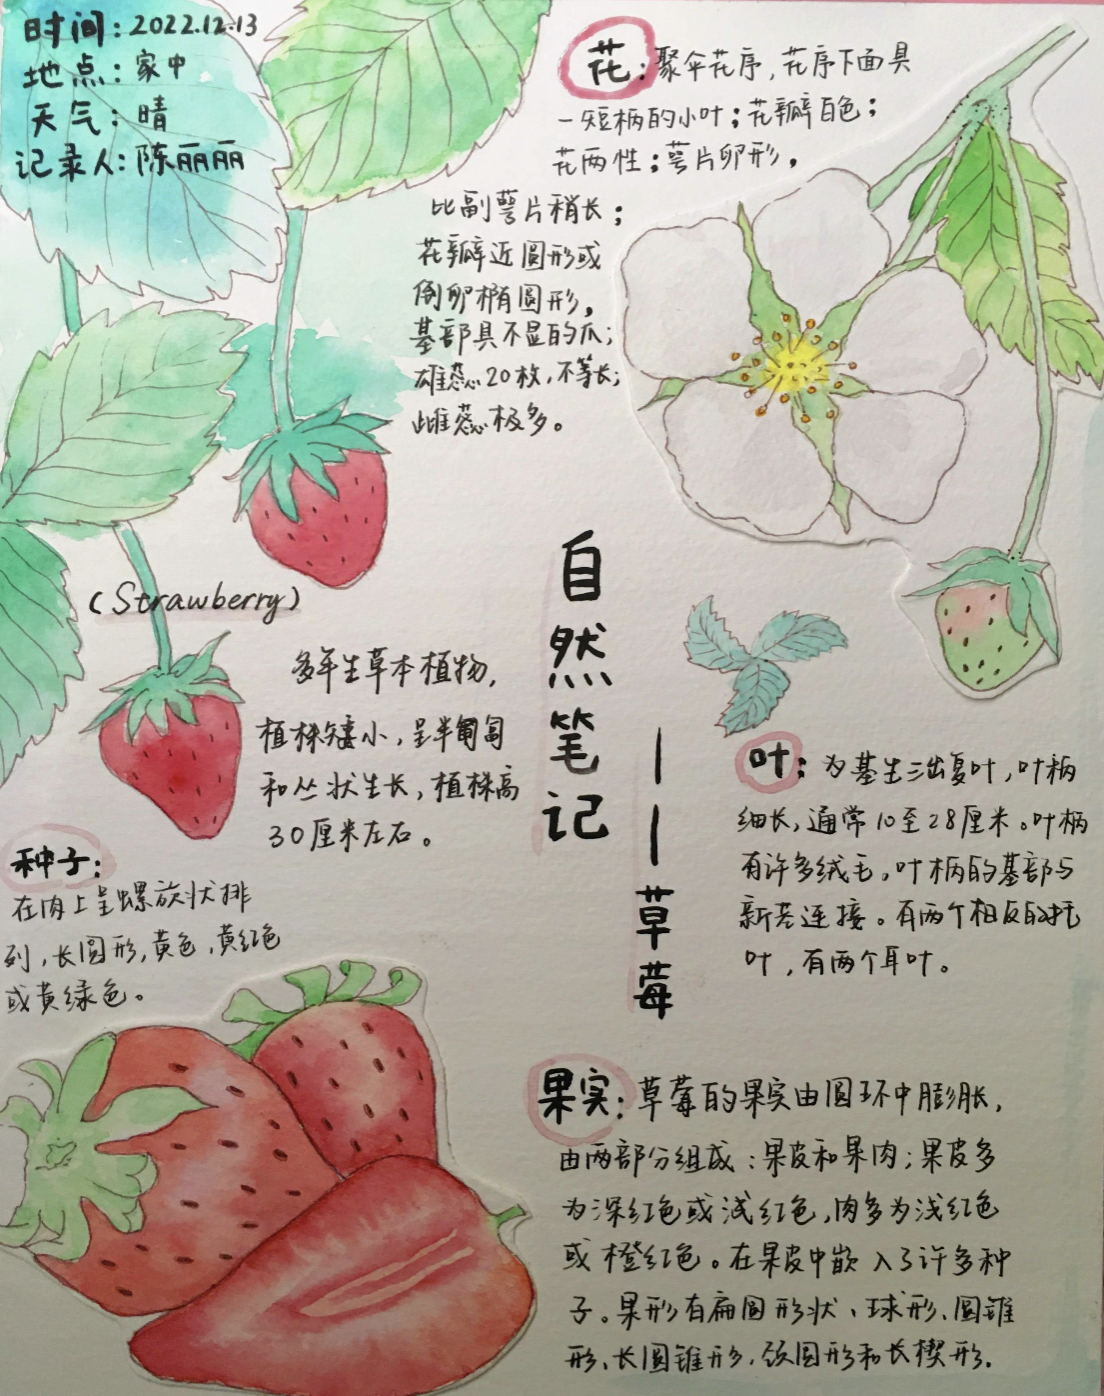 时间:2022.12.13
地点:家中
天气:晴
记录人:陈丽丽
花:聚伞花序,花序下面具
一短柄的小叶;花瓣白色;
花两性;萼片卵形,
比副萼片稍长;
花瓣近圆形或
倒卵椭圆形,
基部具不显的爪;
雄蕊20枚,不等长;
雌蕊极多。
(Strawberry)
多年生草本植物,
植株矮小,呈半匍匐
和丛状生长,植株高
30厘米左右。
自然笔记
——草莓
叶:为基生三出复叶,叶柄
细长,通常10至28厘米。叶柄
有许多绒毛,叶柄的基部与
新茎连接。有两个相反的托
叶,有两个耳叶。
种子:
在肉上呈螺旋状排
列,长圆形,黄色,黄红色
或黄绿色。
果实:草莓的果实由圆环中膨胀,
由两部分组成:果皮和果肉;果皮多
为深红色或浅红色,肉多为浅红色
或橙红色。在果皮中嵌入了许多种
子。果形有扁圆形状、球形、圆锥
形、长圆锥形,颈圆形和长楔形.